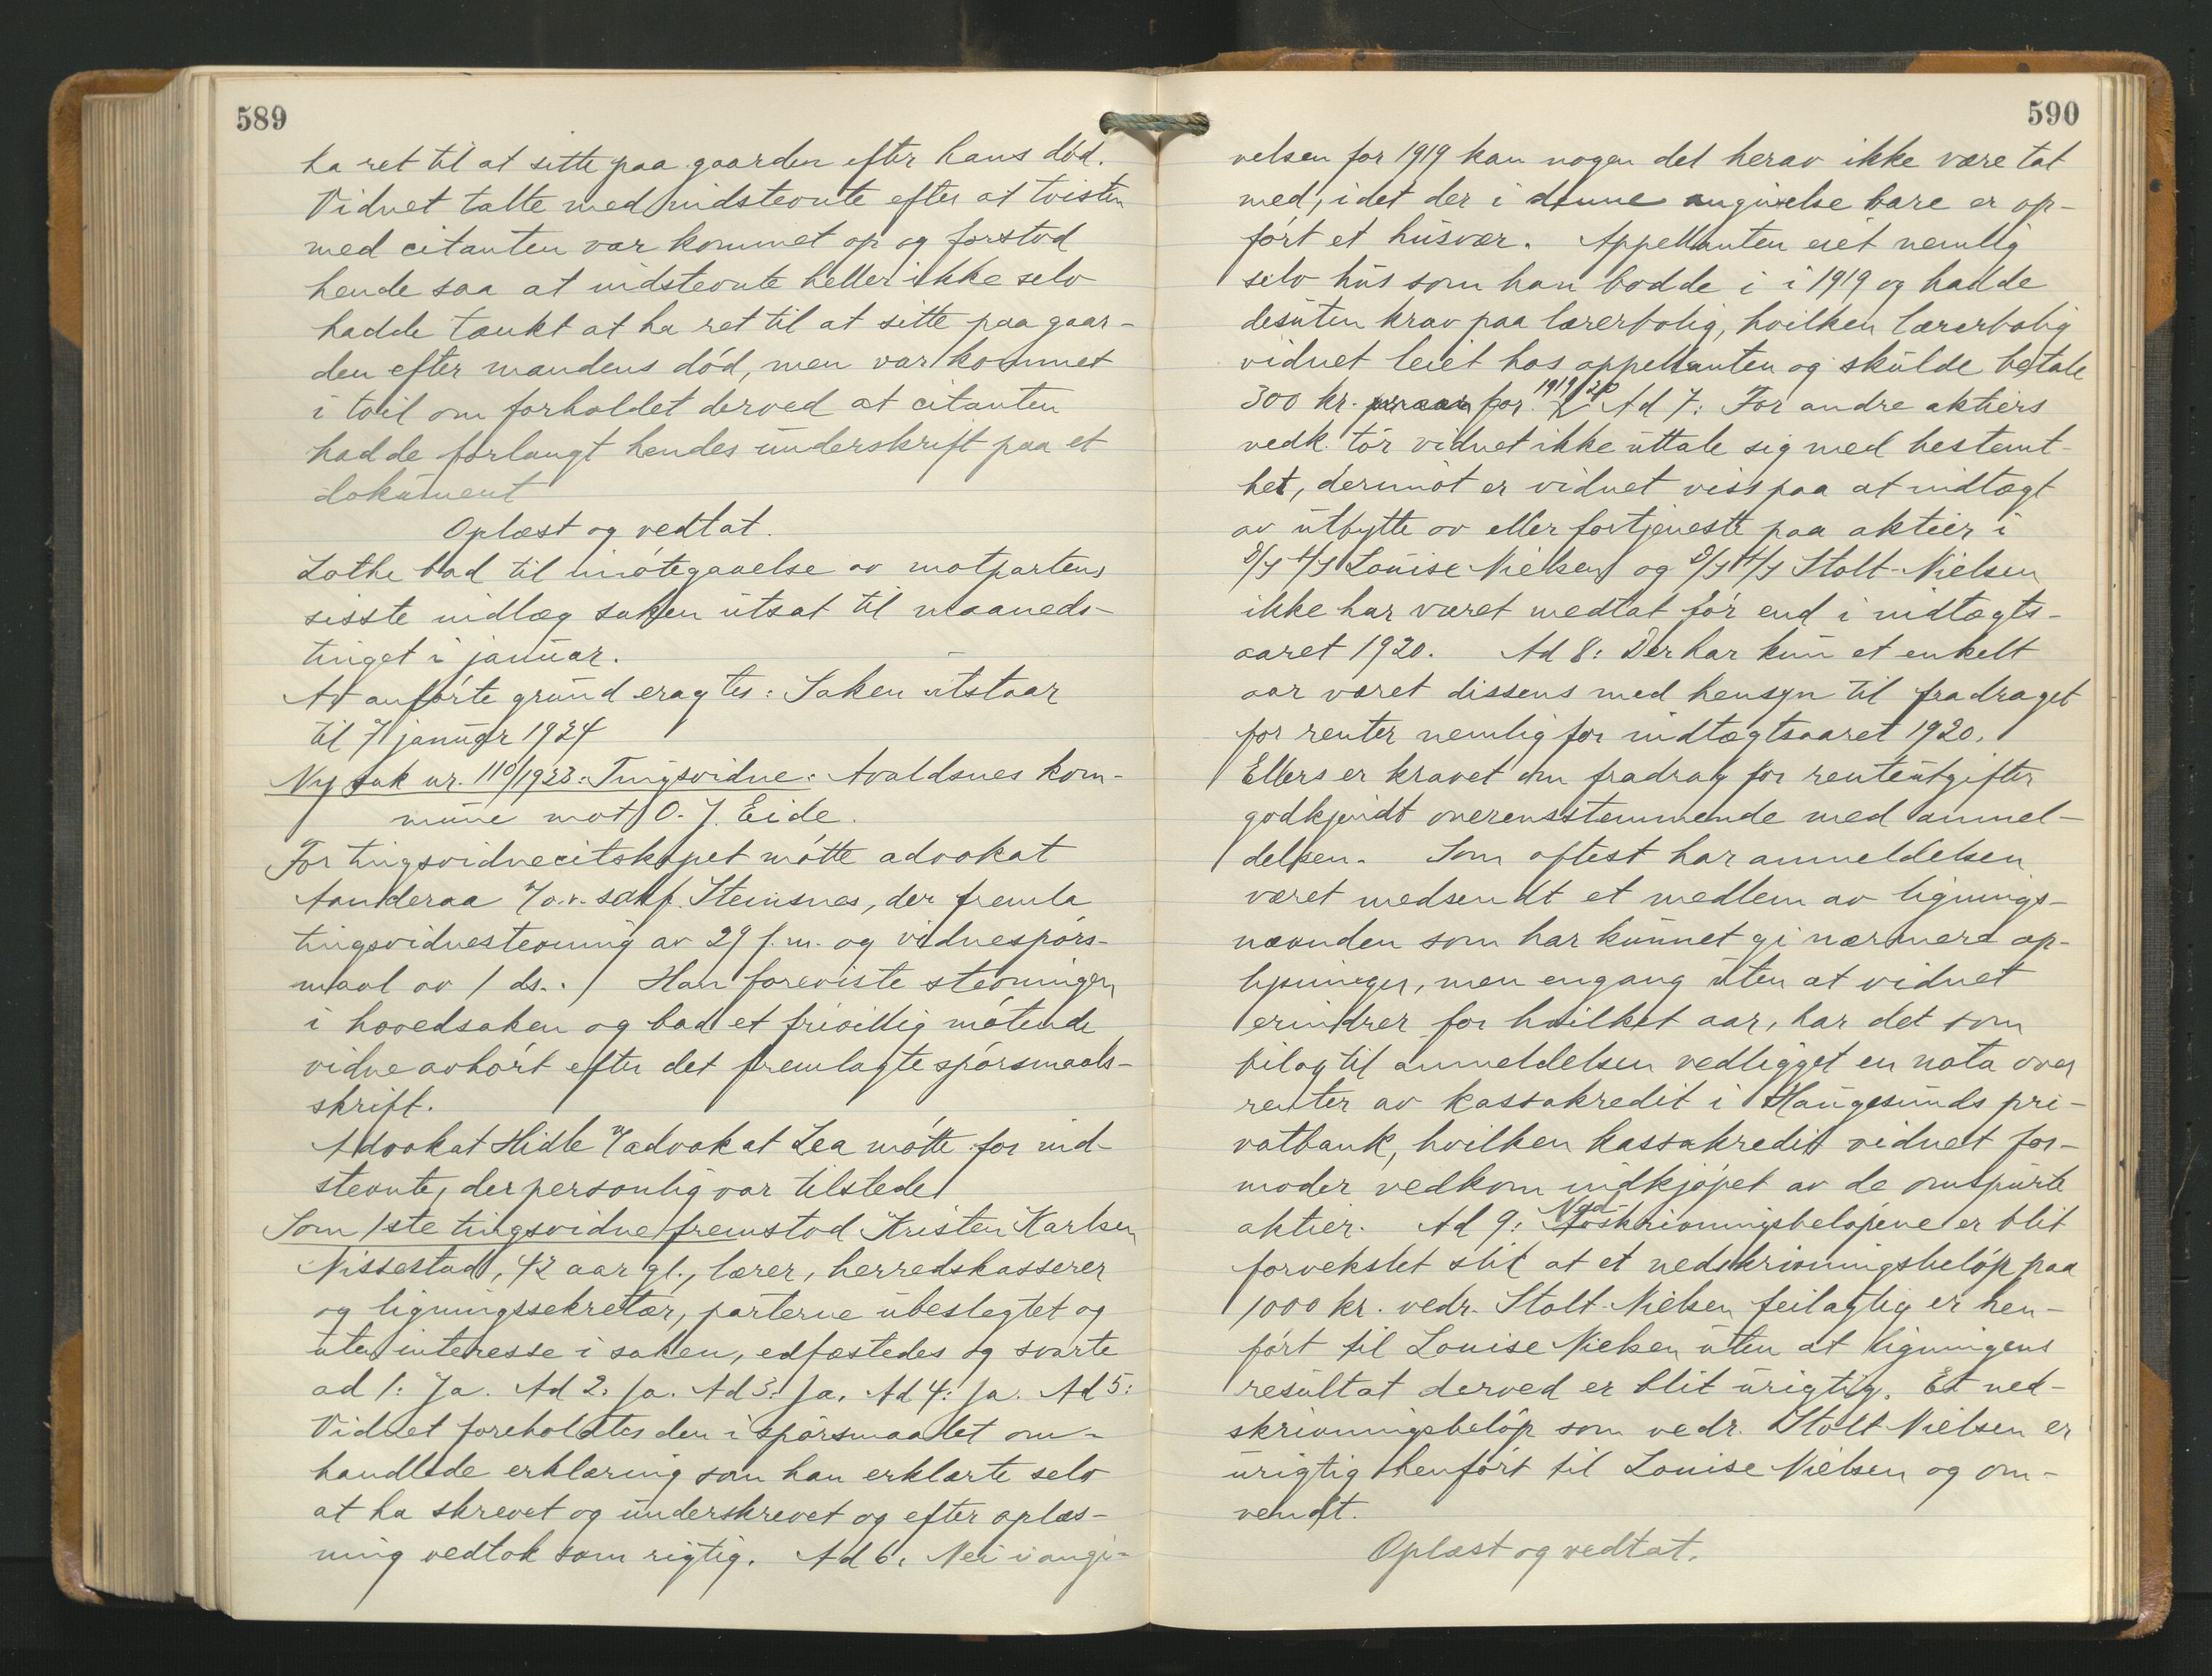 589
ha ret til at sitte paa gaarden efter hans död.
Vidnet talte med indstevnte efter at tvisten
med citanten var kommet op og forstod
hende saa at indstevnte heller ikke selv
hadde tænkt at ha ret til at sitte paa gaar-
den efter mandens död, men var kommet
i tvil om forholdet derved at citanten
hadde forlangt hendes underskrift paa et
dokument
Oplæst og vedtat.
Lothe bad til imötegaaelse av motpartens
sisste indlæg saken utsat til maaneds-
tinget i januar.
Av anförte grund eragtes: Saken utstaar
til 7 januar 1924
Ny sak nr. 110/1923: Tingsvidne: Avaldsnes kom-
mune mot O. J. Eide.
For tingsvidnecitskapet mötte advokat
Aanderaa v/o.r. sakf. Steinsnes, der fremla
tingsvidnestevning av 29 f.m. og vidnespörs-
maal av 1 ds. Han foreviste stevningen
i hovedsaken og bad et frivillig mötende
vidne avhört efter det fremlagte spörsmaals-
skrift.
Advokat Hidle v/advokat Lea mötte for ind-
stevnte, der personlig var tilstede
Som 1ste tingsvidne fremstod Kristen Karlsen
Nissestad, 42 aar gl., lærer, herredskasserer
og ligningssekretær, parterne ubeslegtet og
uten interesse i saken, edfæstedes og svarte
ad 1: Ja. Ad 2: Ja. Ad 3: Ja. Ad 4: Ja. Ad 5:
Vidnet foreholdtes den i spörsmaalet om-
handlede erklæring som han erklærte selv
at ha skrevet og underskrevet og efter oplæs-
ning vedtok som rigtig. Ad 6: Nei i angi-
590
velsen for 1919 kan nogen del herav ikke være tat
med, idet der i denne angivelse bare er op-
fört et husvær. Appellanten eiet nemlig
selv hus som han bodde i i 1919 og hadde
desuten krav paa lærerbolig, hvilken lærerbolig
vidnet leiet hos appellanten og skulde betale
300 kr. for 1919/20 Ad 7: For andre aktiers
vedk. tör vidnet ikke uttale sig med bestemt-
het, derimot er vidnet viss paa at indtægt
av utbytte av eller fortjeneste paa aktier i
D/S A/S Louise Nielsen og D/S A/S Stolt-Nielsen
ikke har været medtat för end i indtægts-
aaret 1920. Ad 8: Der har kun et enkelt
aar været dissens med hensyn til fradraget
for renter nemlig for indtægtsaaret 1920.
Ellers er kravet om fradrag for renteutgifter
godkjendt overensstemmende med anmel-
delsen. Som oftest har anmeldelsen
været medsendt et medlem av lignings-
nævnden som har kunnet gi nærmere op-
lysninger, men engang uten at vidnet
erindrer for hvilket aar, har det som
bilag til anmeldelsen vedligget en nota over
renter av kassakredit i Haugesunds pri-
vatbank, hvilken kassakredit vidnet for-
moder vedkom indkjöpet av de omspurte
aktier. Ad 9: Nedskrivningsbelöpene er blit
forvekslet slik at et nedskrivningsbelöp paa
1000 kr. vedr. Stolt-Nielsen feilagtig er hen-
fört til Louise Nielsen uten at ligningens
resultat derved er blit urigtig. Et ned-
skrivningsbelöp som vedr. Stolt-Nielsen er
urigtig henfört til Louise Nielsen og om-
vendt.
Oplæst og vedtat.